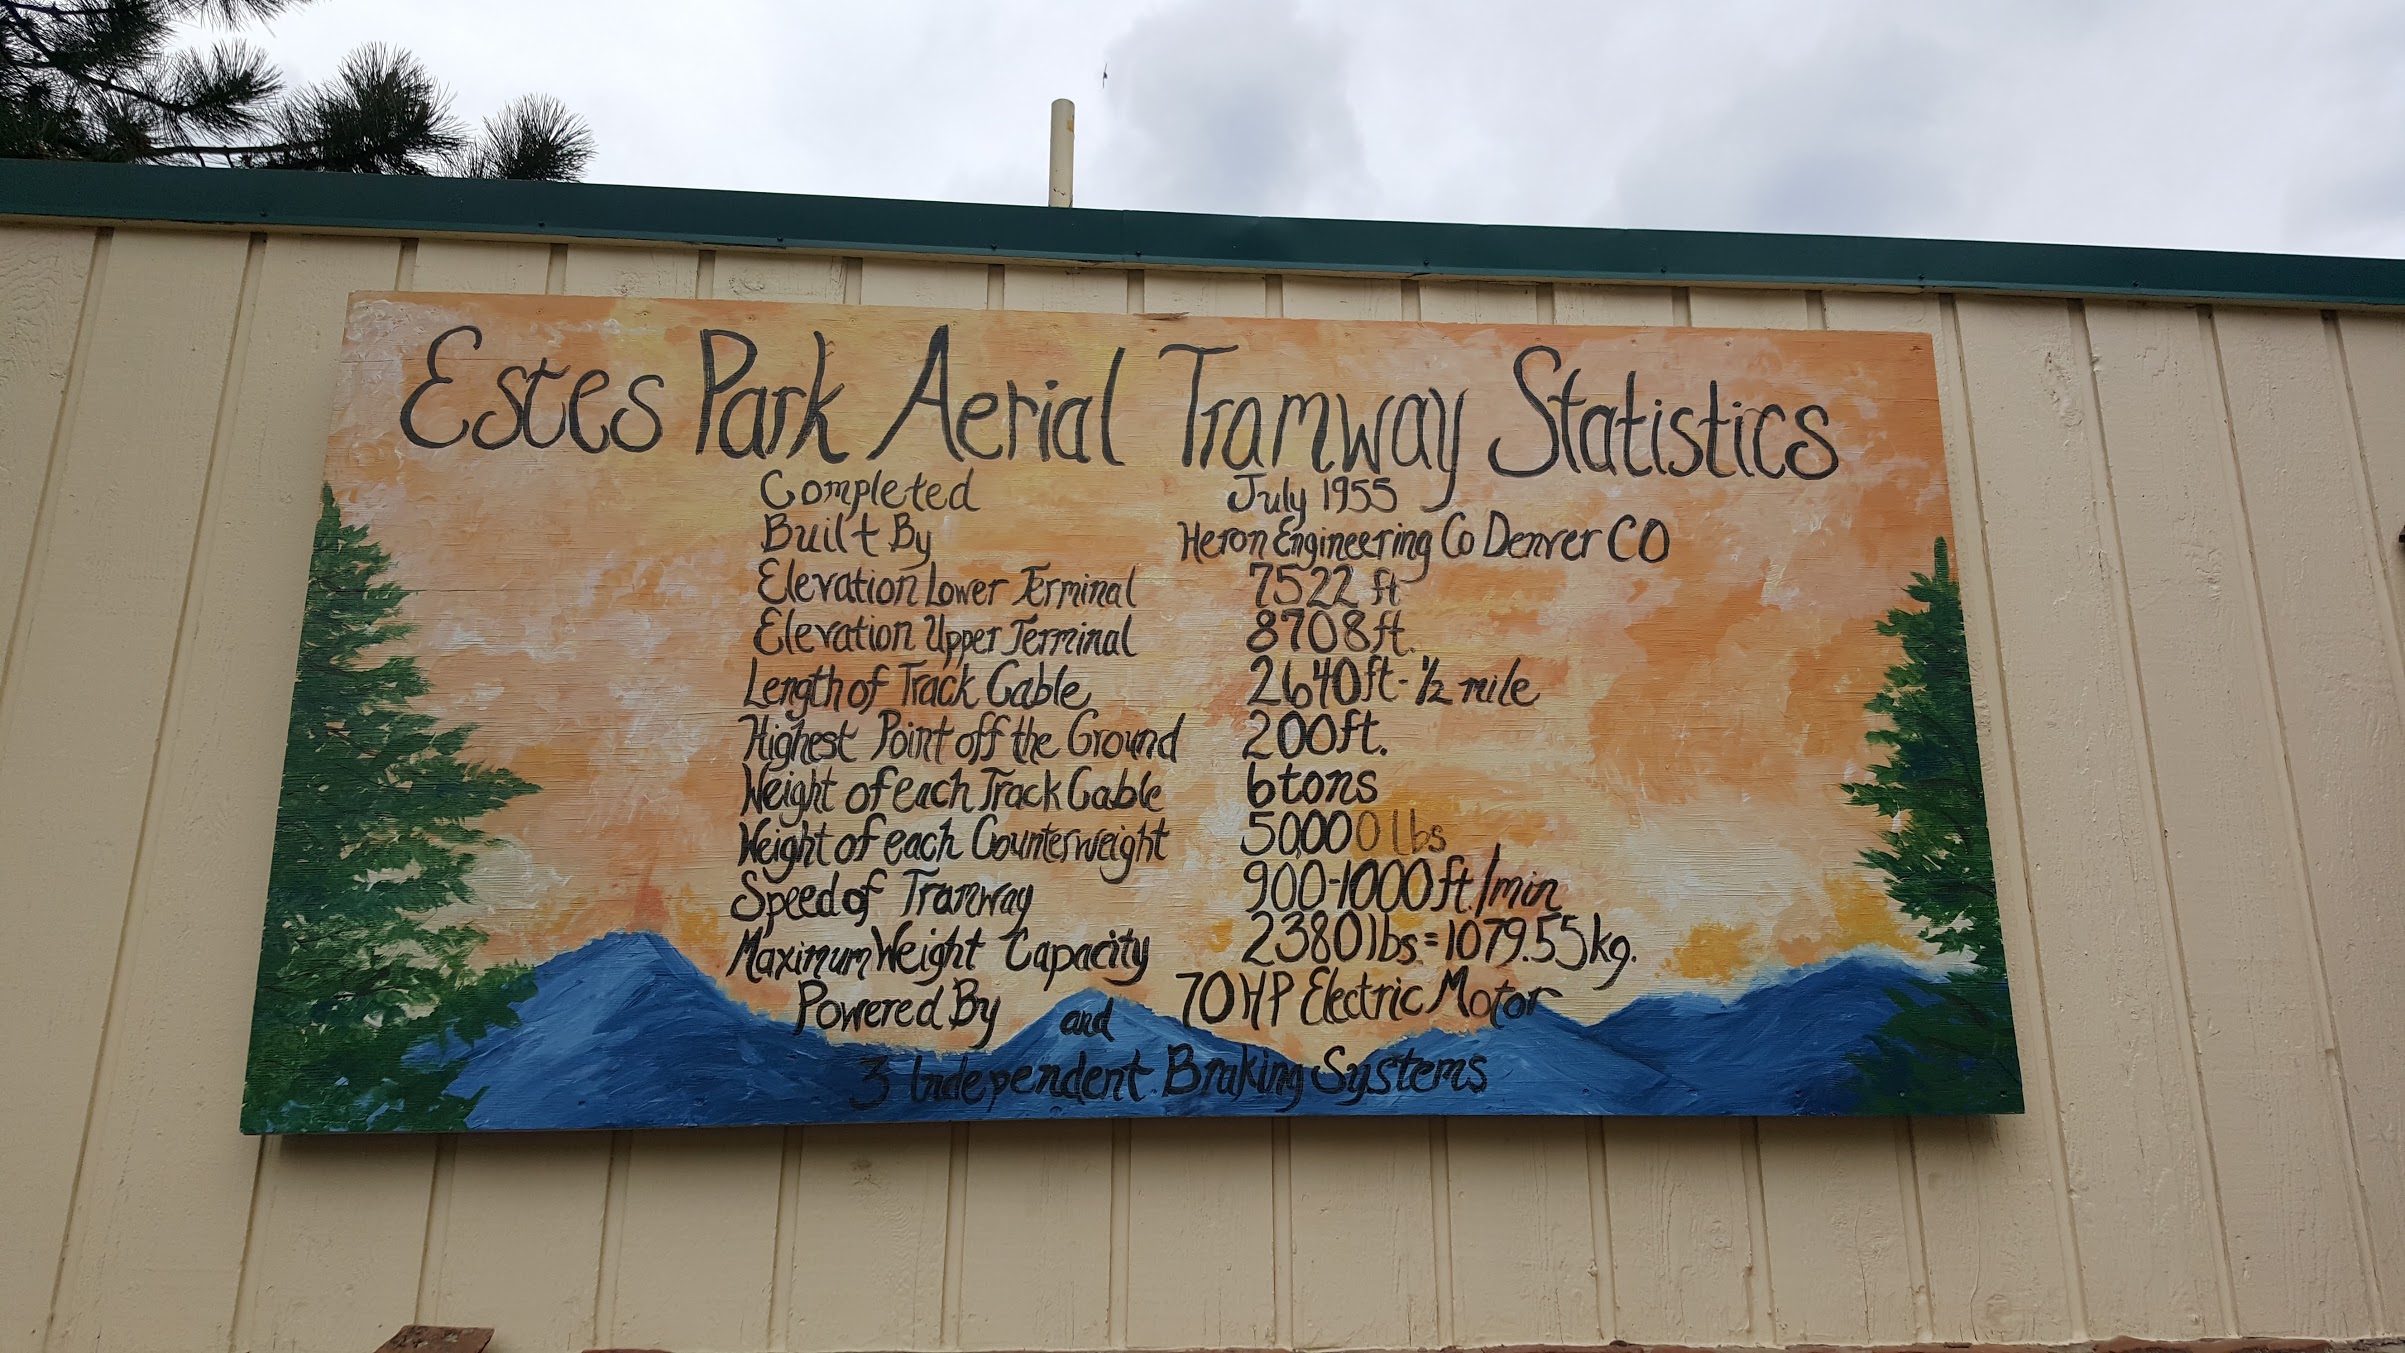 Estes Park Aerial Tramway Statistics
Completed July 1955
Built By Heron Engineering Co Denver CO
Elevation Lower Terminal 7522 ft
Elevation Upper Terminal 8708 ft.
Length of Track Cable 2640 ft - 1/2 mile
Highest Point off the Ground 200 ft.
Weight of each Track Cable 6 tons
Weight of each Counterweight 50,000 lbs
Speed of Tramway 900-1000 ft./min
Maximum Weight Capacity 2380 lbs = 1079.55 kg.
Powered By 70 HP Electric Motor
and
3 Independent Braking Systems